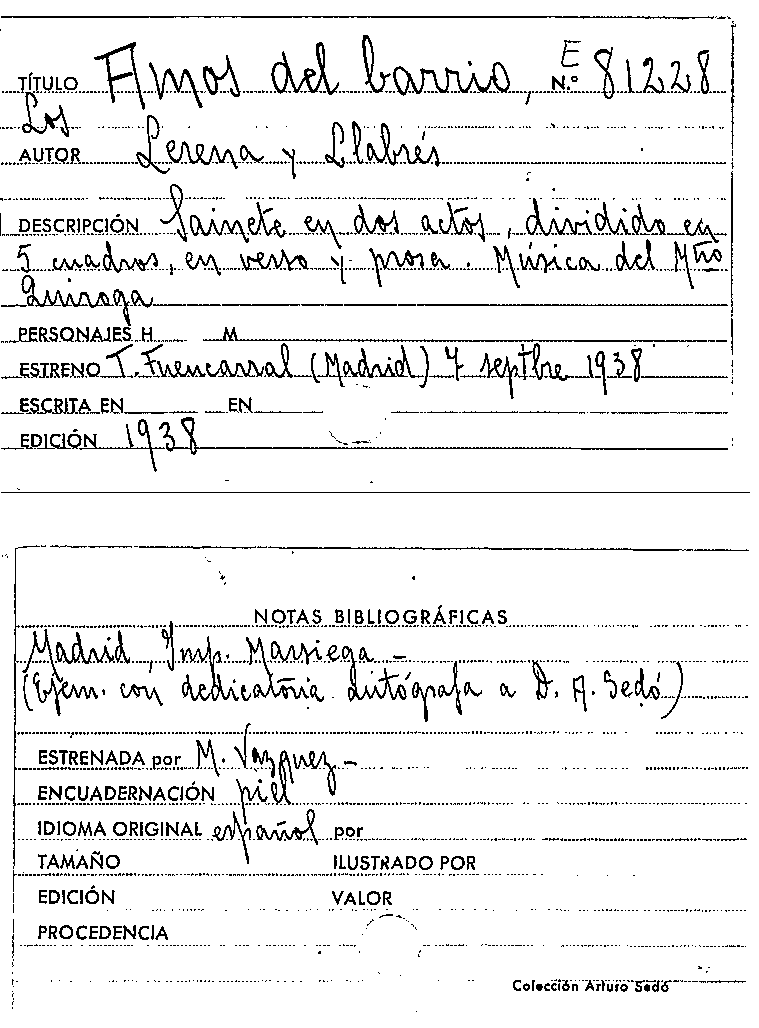 TÍTULO Amos del barrio, E N.º 81228
Los
AUTOR Lerena y Llabrés
DESCRIPCIÓN Sainete en dos actos, dividido en
5 cuadros, en verso y prosa. Música del Mtro
Quiroga
PERSONAJES H M
ESTRENO T. Fuencarral (Madrid) 7 septbre 1938
ESCRITA EN EN
EDICIÓN 1938
NOTAS BIBLIOGRÁFICAS
Madrid, Imp. Marsiega -
(Ejem. con dedicatoria autógrafa a D. A. Sedó)
ESTRENADA por M. Vazquez -
ENCUADERNACIÓN piel
IDIOMA ORIGINAL español por
TAMAÑO ILUSTRADO POR
EDICIÓN VALOR
PROCEDENCIA
Colección Arturo Sedó